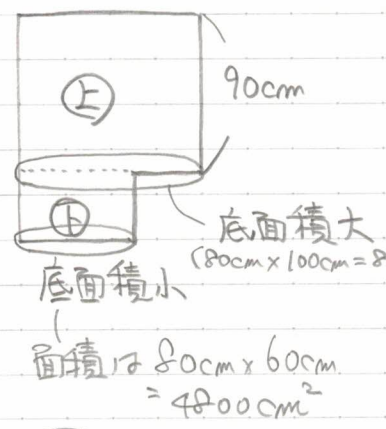 上
90cm
下
底面積大
(80cm×100cm=8
底面積小
面積は80cm×60cm
=4800cm²